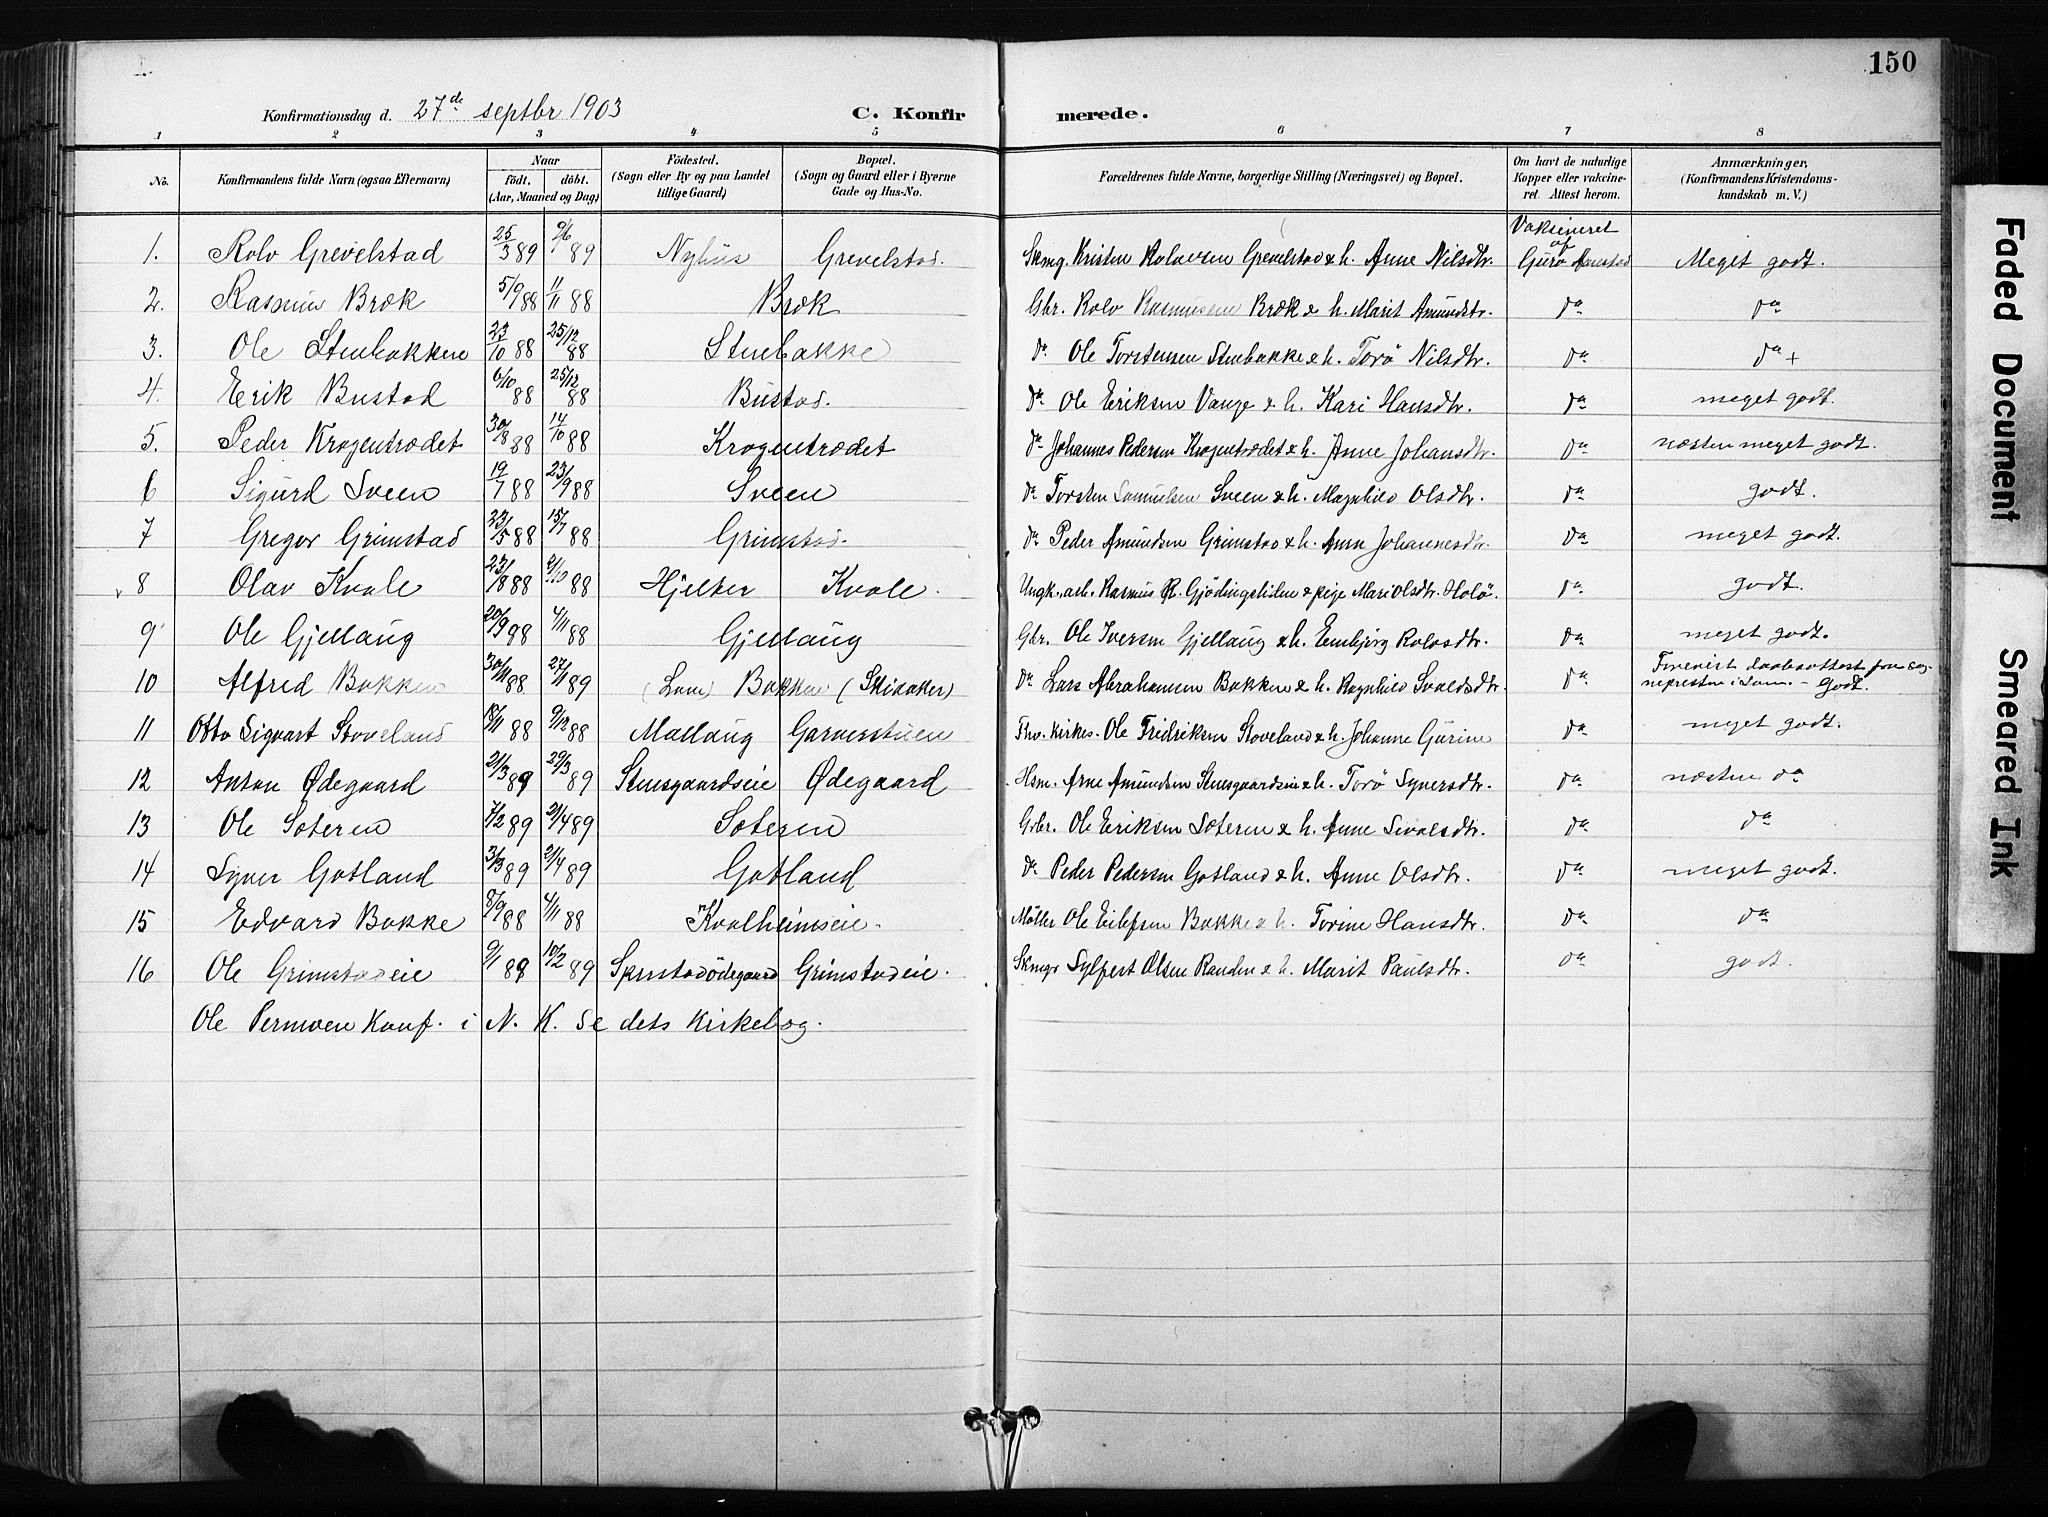 150
Konfirmationsdag d. 27de septbr 1903 C. Konfirmerede.
1 2 3 4 5 6 7 8
No. Konfirmandens fulde Navn (ogsaa Efternavn) Naar født. døbt. (Aar, Maaned og Dag) Födested. (Sogn eller By og paa Landet tillige Gaard) Bopæl. (Sogn og Gaard eller i Byerne Gade og Hus-No. Forældrenes fulde Navne, borgerlige Stilling (Næringsvei) og Bopæl. Om havt de naturlige Kopper eller vakcineret. Attest herom. Anmærkninger, (Konfirmandens Kristendomskundskab m. V.)
1. Rolv Grevelstad 25/3 89 9/6 89 Nyhus Grevelstad. Skmg. Kristen Rolvsen Grevelstad & h. Anne Nilsdtr. Vaksineret af Guro Meget godt.
2. Rasmus Bræk 5/9 88 11/11 88 Bræk Gbr. Rolv Rasmussen Bræk & h. Marit Amundstr. do do
3. Ole Stenbakken 23/10 88 25/12 88 Stenbakke do Ole Torstensen Stenbakke & h. Torö Nilsdtr. do do +
4. Erik Bustad 6/10 88 25/12 88 Bustad. do Ole Eriksen Vange & h. Kari Hansdtr. do meget godt.
5. Peder Krogentrædet 30/8 88 14/10 88 Krogentrædet do Johannes Pedersen Krogentrædet & h. Anne Johansdtr. do næsten meget godt.
6 Sigurd Sveen 19/7 88 23/9 88 Sveen do Torsten Samuelsen Sveen & h. Magnhild Olsdtr. do godt.
7 Gregor Grimstad 23/5 88 15/7 88 Grimstad. do Peder Amundsen Grimstad & h. Anne Johannesdtr. do meget godt.
8 Olav Kvale 23/8 88 9/10 88 Hjelter Kvale. Ungk. arb. Rasmus R. Gjödingslien & pige Mari Olsdtr. Holö. do godt.
9 Ole Gjellaug 20/9 98 4/11 88 Gjellaug Gbr. Ole Iversen Gjellaug & h. Embjörg Rolvsdtr. do meget godt.
10 Alfred Bakken 30/11 88 27/1 89 (Lom) Bakken (Skiaker) do Lars Abrahamsen Bakken & h. Ragnhild Svaldsdtr. do Forevist daabsattest fra sognepresten i Lom. - Godt.
11 Otto Sigvart Stoveland 18/11 88 9/12 88 Mallaug Garverstuen Fhv. Kirkes. Ole Fredriksen Stoveland & h. Johanne Gurine do meget godt.
12 Anton Ødegaard 21/3 89 29/3 89 Stensgaardseie Ødegaard Hsm. Arne Amundsen Stensgaardseie & h. Torö Synersdtr. do næsten do
13 Ole Soteren 7/2 89 21/4 89 Soteren Gbr. Ole Eriksen Soteren & h. Anne Sivalsdtr. do do
14 Syver Gotland 3/3 89 21/4 89 Gotland do Peder Pedersen Gotland & h. Anne Olsdtr. do meget godt.
15 Edvard Bakke 8/9 88 4/11 88 Kvalheimseie. Möller Ole Eilefsen Bakke & h. Torine Hansdtr. do do
16 Ole Grimstadeie 9/1 89 10/2 89 Grimstadeie. Skmgr Sylfest Olsen Randen & h. Marit Paulsdtr. do godt.
Ole Permoen Konf. i N. K. se dets kirkebog.
Faded Document
Smeared Ink